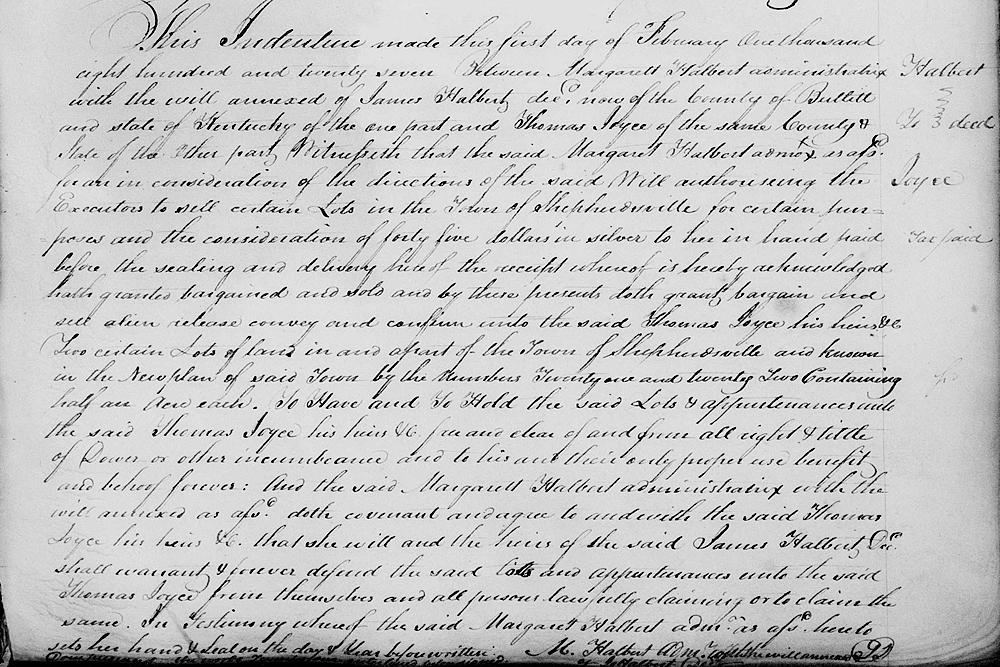 This Indenture made this first day of February One thousand
eight hundred and twenty seven Between Margarett Halbert administratrix
Halbert
with the will annexed of James Halbert decd. now of the County of Bullitt
and state of Kentucky of the one part and Thomas Joyce of the same County &
To 3 deed
State of the other part, Witnesseth that the said Margaret Halbert admrx as afsd.
for an in consideration of the directions of the said Will authoriseing the
Joyce
Executors to sell certain Lots in the Town of Shepherdsville for certain pur=
=poses and the consideration of forty five dollars in silver to her in hand paid
Tax paid
before the sealing and delivery hereof the receipt whereof is hereby acknowledged
hath granted bargained and sold and by these presents doth grant, bargain and
sell alien release convey and confirm unto the said Thomas Joyce his heirs &c
Two certain Lots of land in and apart of the Town of Shepherdsville and known
in the New plan of said Town by the Numbers Twenty one and twenty Two Containing
half an Acre each. To Have and To Hold the said Lots & appurtenances unto
the said Thomas Joyce his heirs &c free and clear of and from all right & title
of Dower or other incumbeance and to his and their only proper use benefit
and behoof forever: And the said Margarett Halbert administratrix with the
will annexed as afsd. doth covenant and agree to and with the said Thomas
Joyce his heirs &c. that she will and the heirs of the said James Halbert, Decd.
shall warrant & forever defend the said lotts and appurtenances unto the said
Thomas Joyce from themselves and all persons lawfully claiming or to claim the
same. In Testimony whereof the said Margaret Halbert admrx. as afsd. hereto
sets her hand & seal on the day & Year before written. M. Halbert Adm. with the will annexed